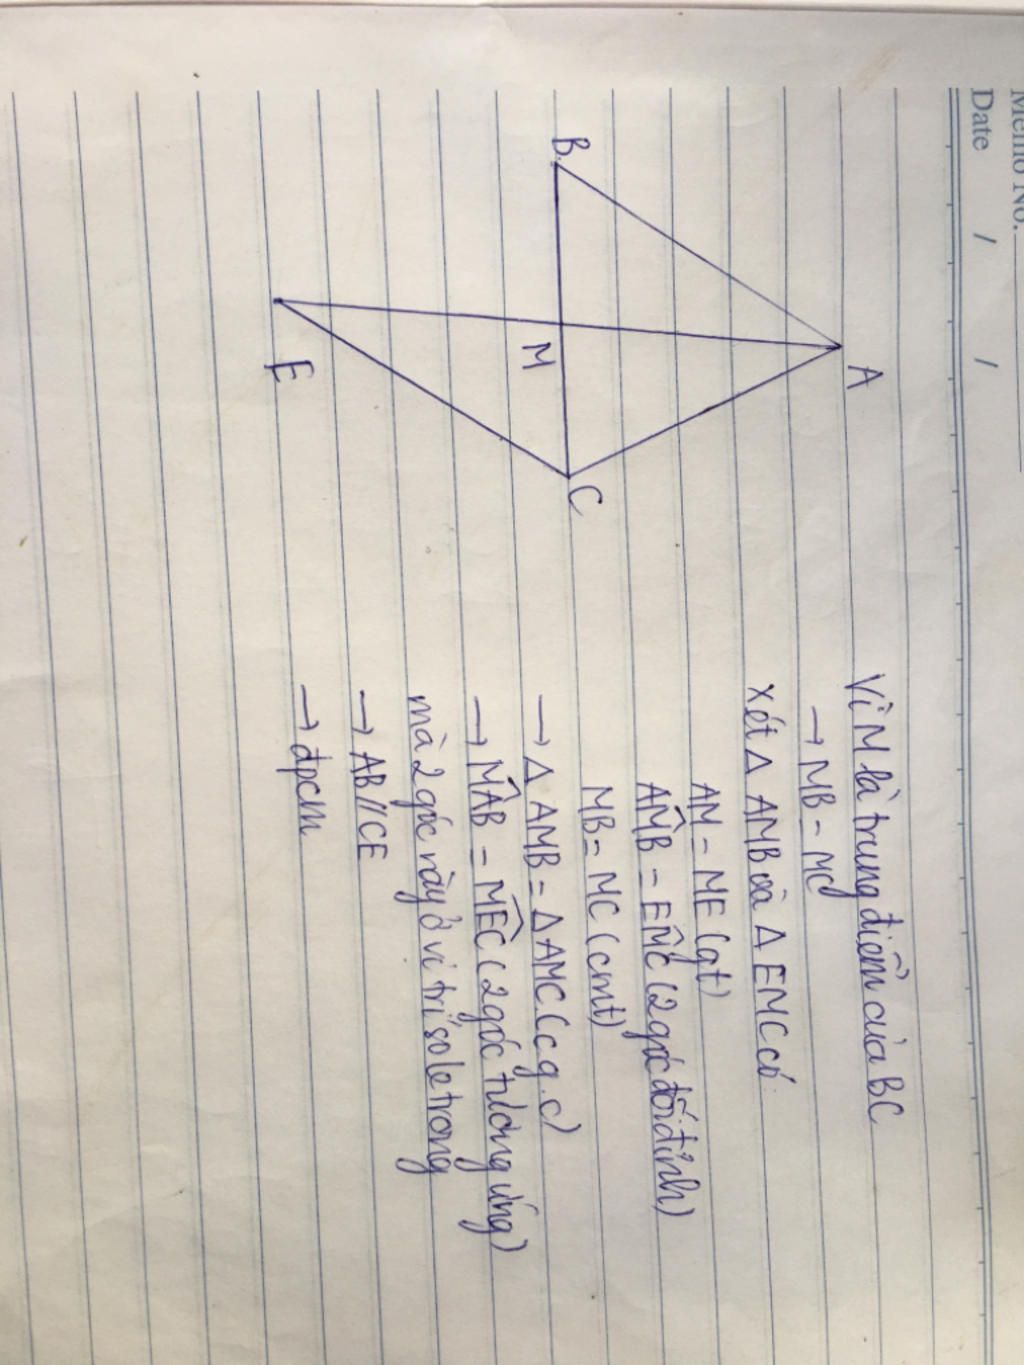 Memo No.
Date / /
A
B
M
C
E
Vì M là trung điểm của BC
→ MB = MC
Xét Δ AMB và Δ EMC có
AM = ME (gt)
AM̂B = EM̂C (2 góc đối đỉnh)
MB = MC (cmt)
→ Δ AMB = Δ AMC (c.g.c)
→ MÂB = MÊC (2 góc tương ứng)
mà 2 góc này ở vị trí so le trong
→ AB // CE
→ đpcm